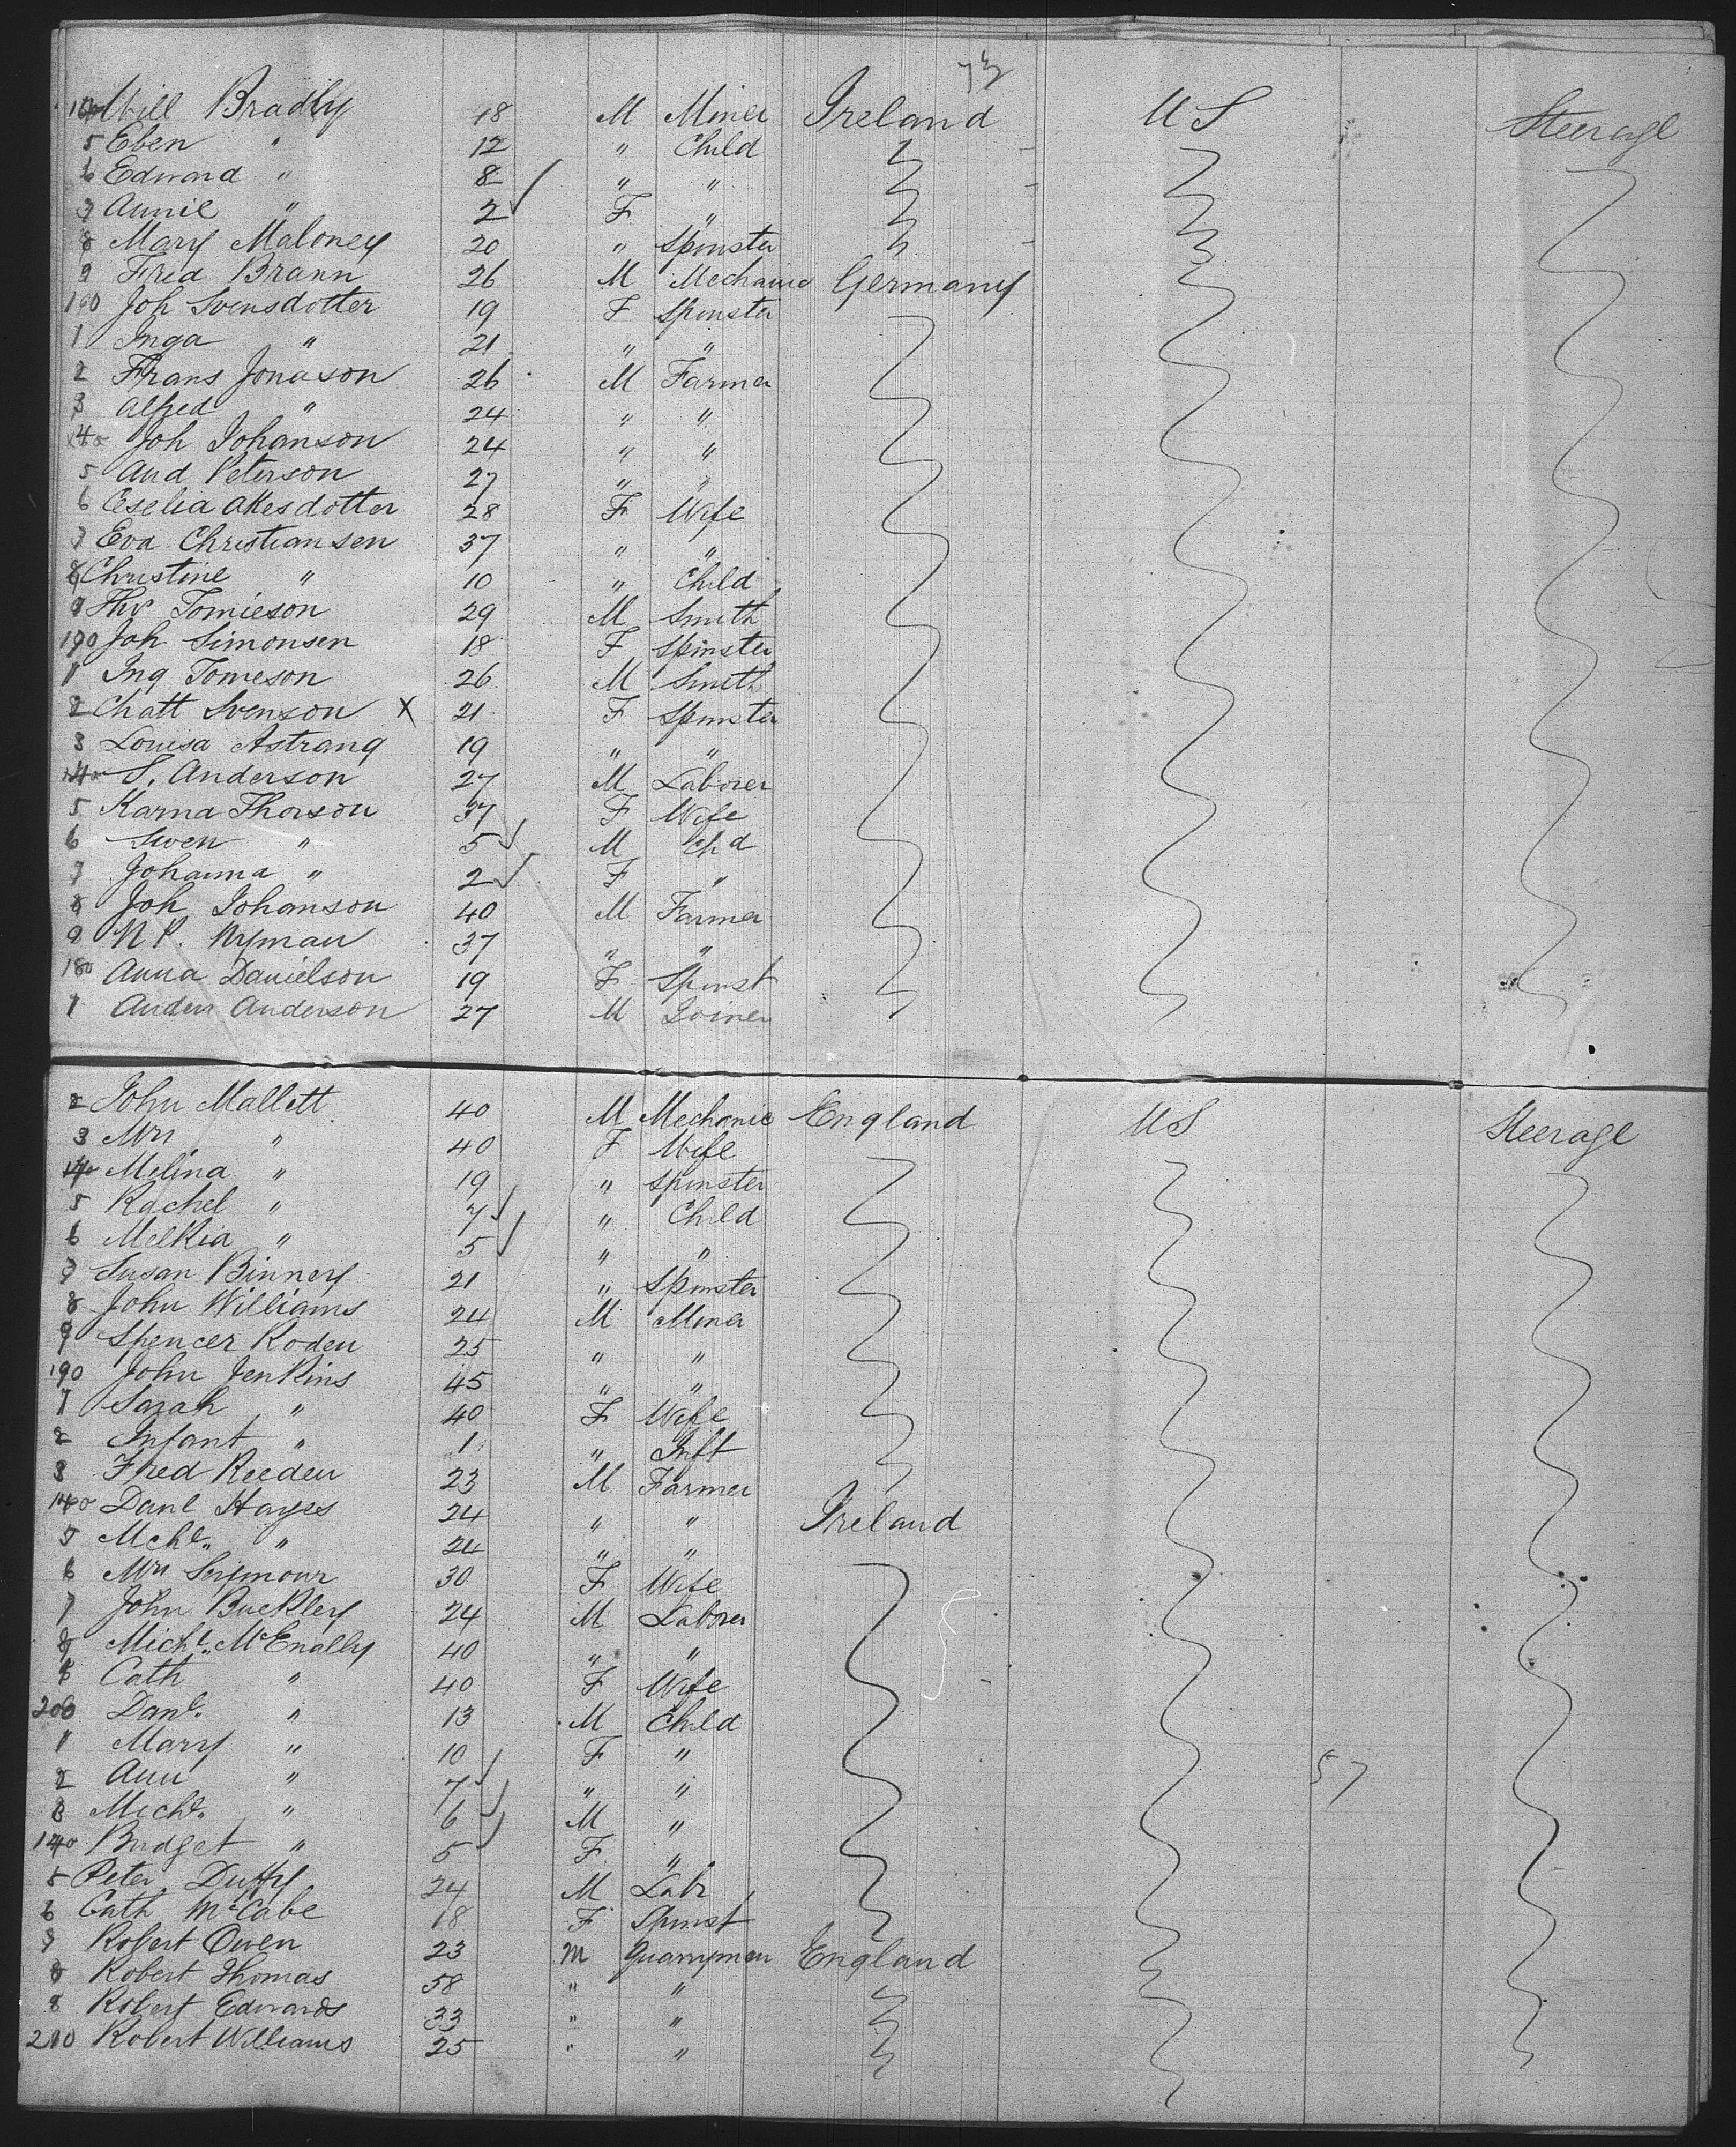 Will Bradly 18 M Miner Ireland US Steerage
5 Eben " 12 " Child
6 Edward " 8 " "
7 Annie " 2 F "
8 Mary Maloney 20 " Spinster
9 Fred Brann 26 M Mechanic Germany
160 Joh Svensdotter 19 F Spinster
1 Inga " 21 " "
2 Frans Jonason 26 M Farmer
3 Alfred " 24 " "
4 Joh Johanson 24 " "
5 And Peterson 27 " "
6 Eselia Akesdotter 28 F Wife
7 Eva Christiansen 37 " "
8 Christine " 10 " Child
9 Thr Tomieson 29 M Smith
170 Joh Simonsen 18 F Spinster
1 Ing Tomeson 26 M Smith
2 Chatt Svenson X 21 F Spinster
3 Louisa Astrang 19 " "
4 S. Anderson 27 M Laborer
5 Karna Thorson 37 F Wife
6 Swen " 5 M Chd
7 Johanna " 2 F "
8 Joh Johanson 40 M Farmer
9 N P. Nyman 37 " "
180 Anna Danielson 19 F Spinst
1 Anders Anderson 27 M Joiner
2 John Mallett 40 M Mechanic England US Steerage
3 Mrs " 40 F Wife
4 Melina " 19 " Spinster
5 Rachel " 7 " Child
6 Melkia " 5 " "
7 Susan Binnery 21 " Spinster
8 John Williams 24 M Miner
9 Spencer Roden 25 " "
190 John Jenkins 45 " "
1 Sarah " 40 F Wife
2 Infant " 1 " Inft
3 Fred Reeden 23 M Farmer
Danl Hayes 24 " " Ireland
5 Mchl. " 24 " "
6 Mrs Seymour 30 F Wife
7 John Buckley 24 M Laborer
8 Michl. McEnally 40 " "
Cath " 40 F Wife
200 Danl. " 13 M Child
1 Mary " 10 F "
2 Ann " 7 " " 57
3 Michl. " 6 M "
Bridget " 5 F "
5 Peter Duffy 24 M Labr
6 Cath McCabe 18 F Spinst
7 Robert Owen 23 M Quarrymen England
8 Robert Thomas 58 " "
Robert Edwards 33 " "
210 Robert Williams 25 " "